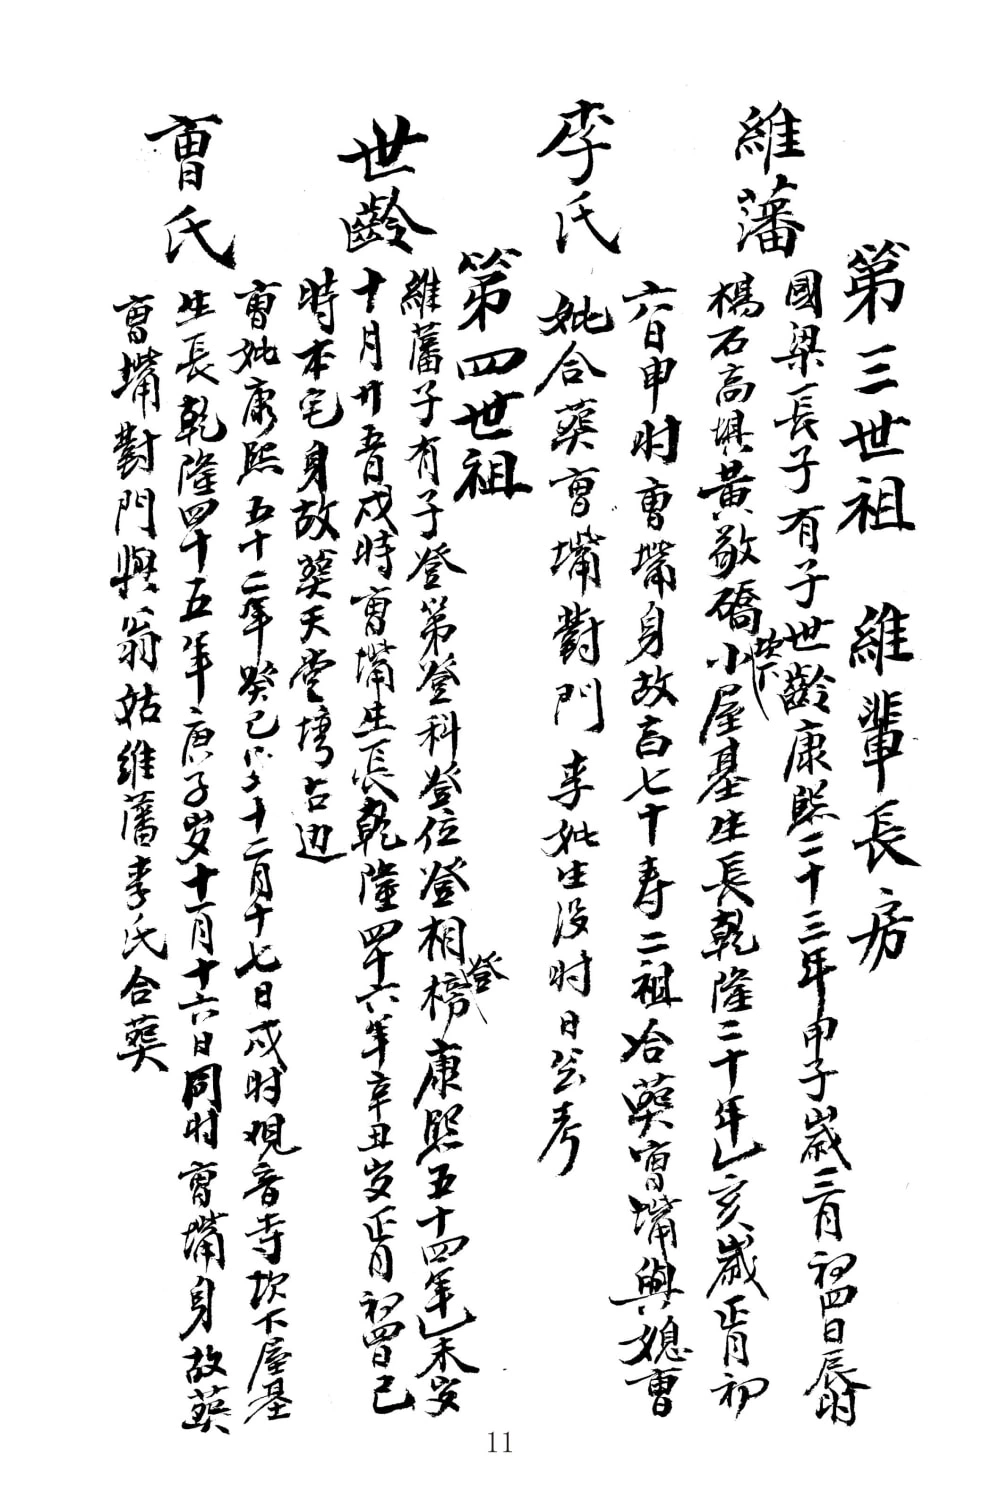 第三世祖 維輩長房
維藩
國梁長子有子世齡康熙二十三年甲子歲三月初四日辰時
楊石高塅黃敬礄坎下小屋基生長乾隆二十年乙亥歲正月初
六日申时曹嘴身故高七十寿二祖合葵曹嘴與媳曹
李氏
妣合葵曹嘴對門李妣生没时日公考
第四世祖
世齡
維藩子有子登第登科登位登相登榜康熙五十四年乙未岁
十月廿五日戌時曹嘴生長乾隆四十六年辛丑岁正月初四日巳
時本宅身故葵天堂塆右边
曹氏
曹妣康熙五十二年癸巳岁十二月十七日戌时观音寺坎下屋基
生長乾隆四十五年庚子岁十一月十六日同时曹嘴身故葵
曹嘴對門與翁姑維藩李氏合葵
11